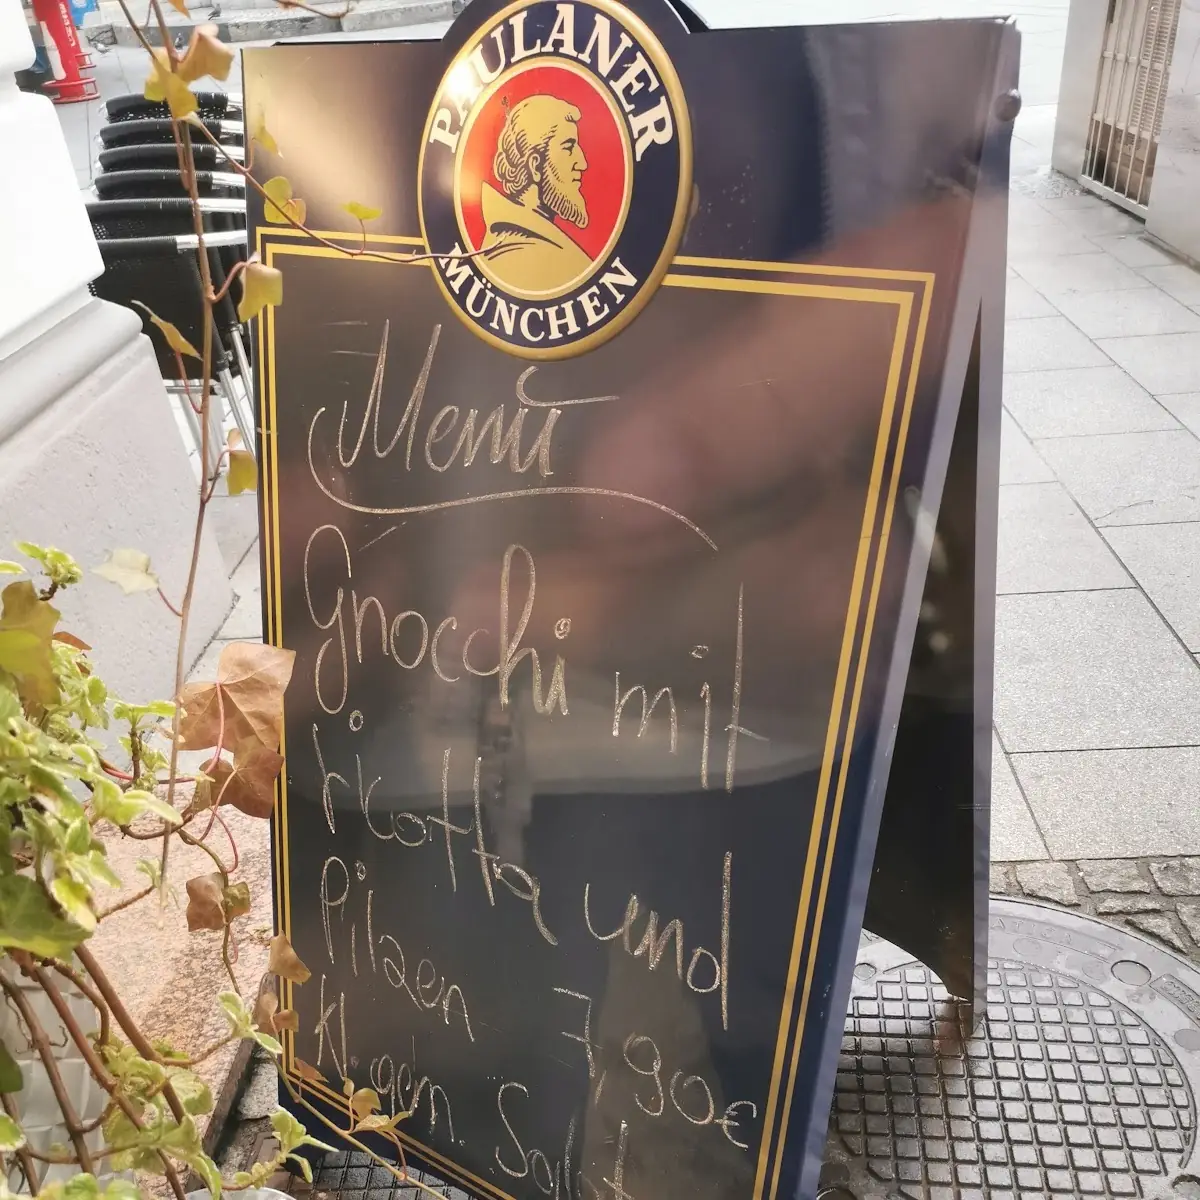 PAULANER
MÜNCHEN
Menü
Gnocchi mit
ricotta und
Pilzen 7,90€
Kl. gem. Salat